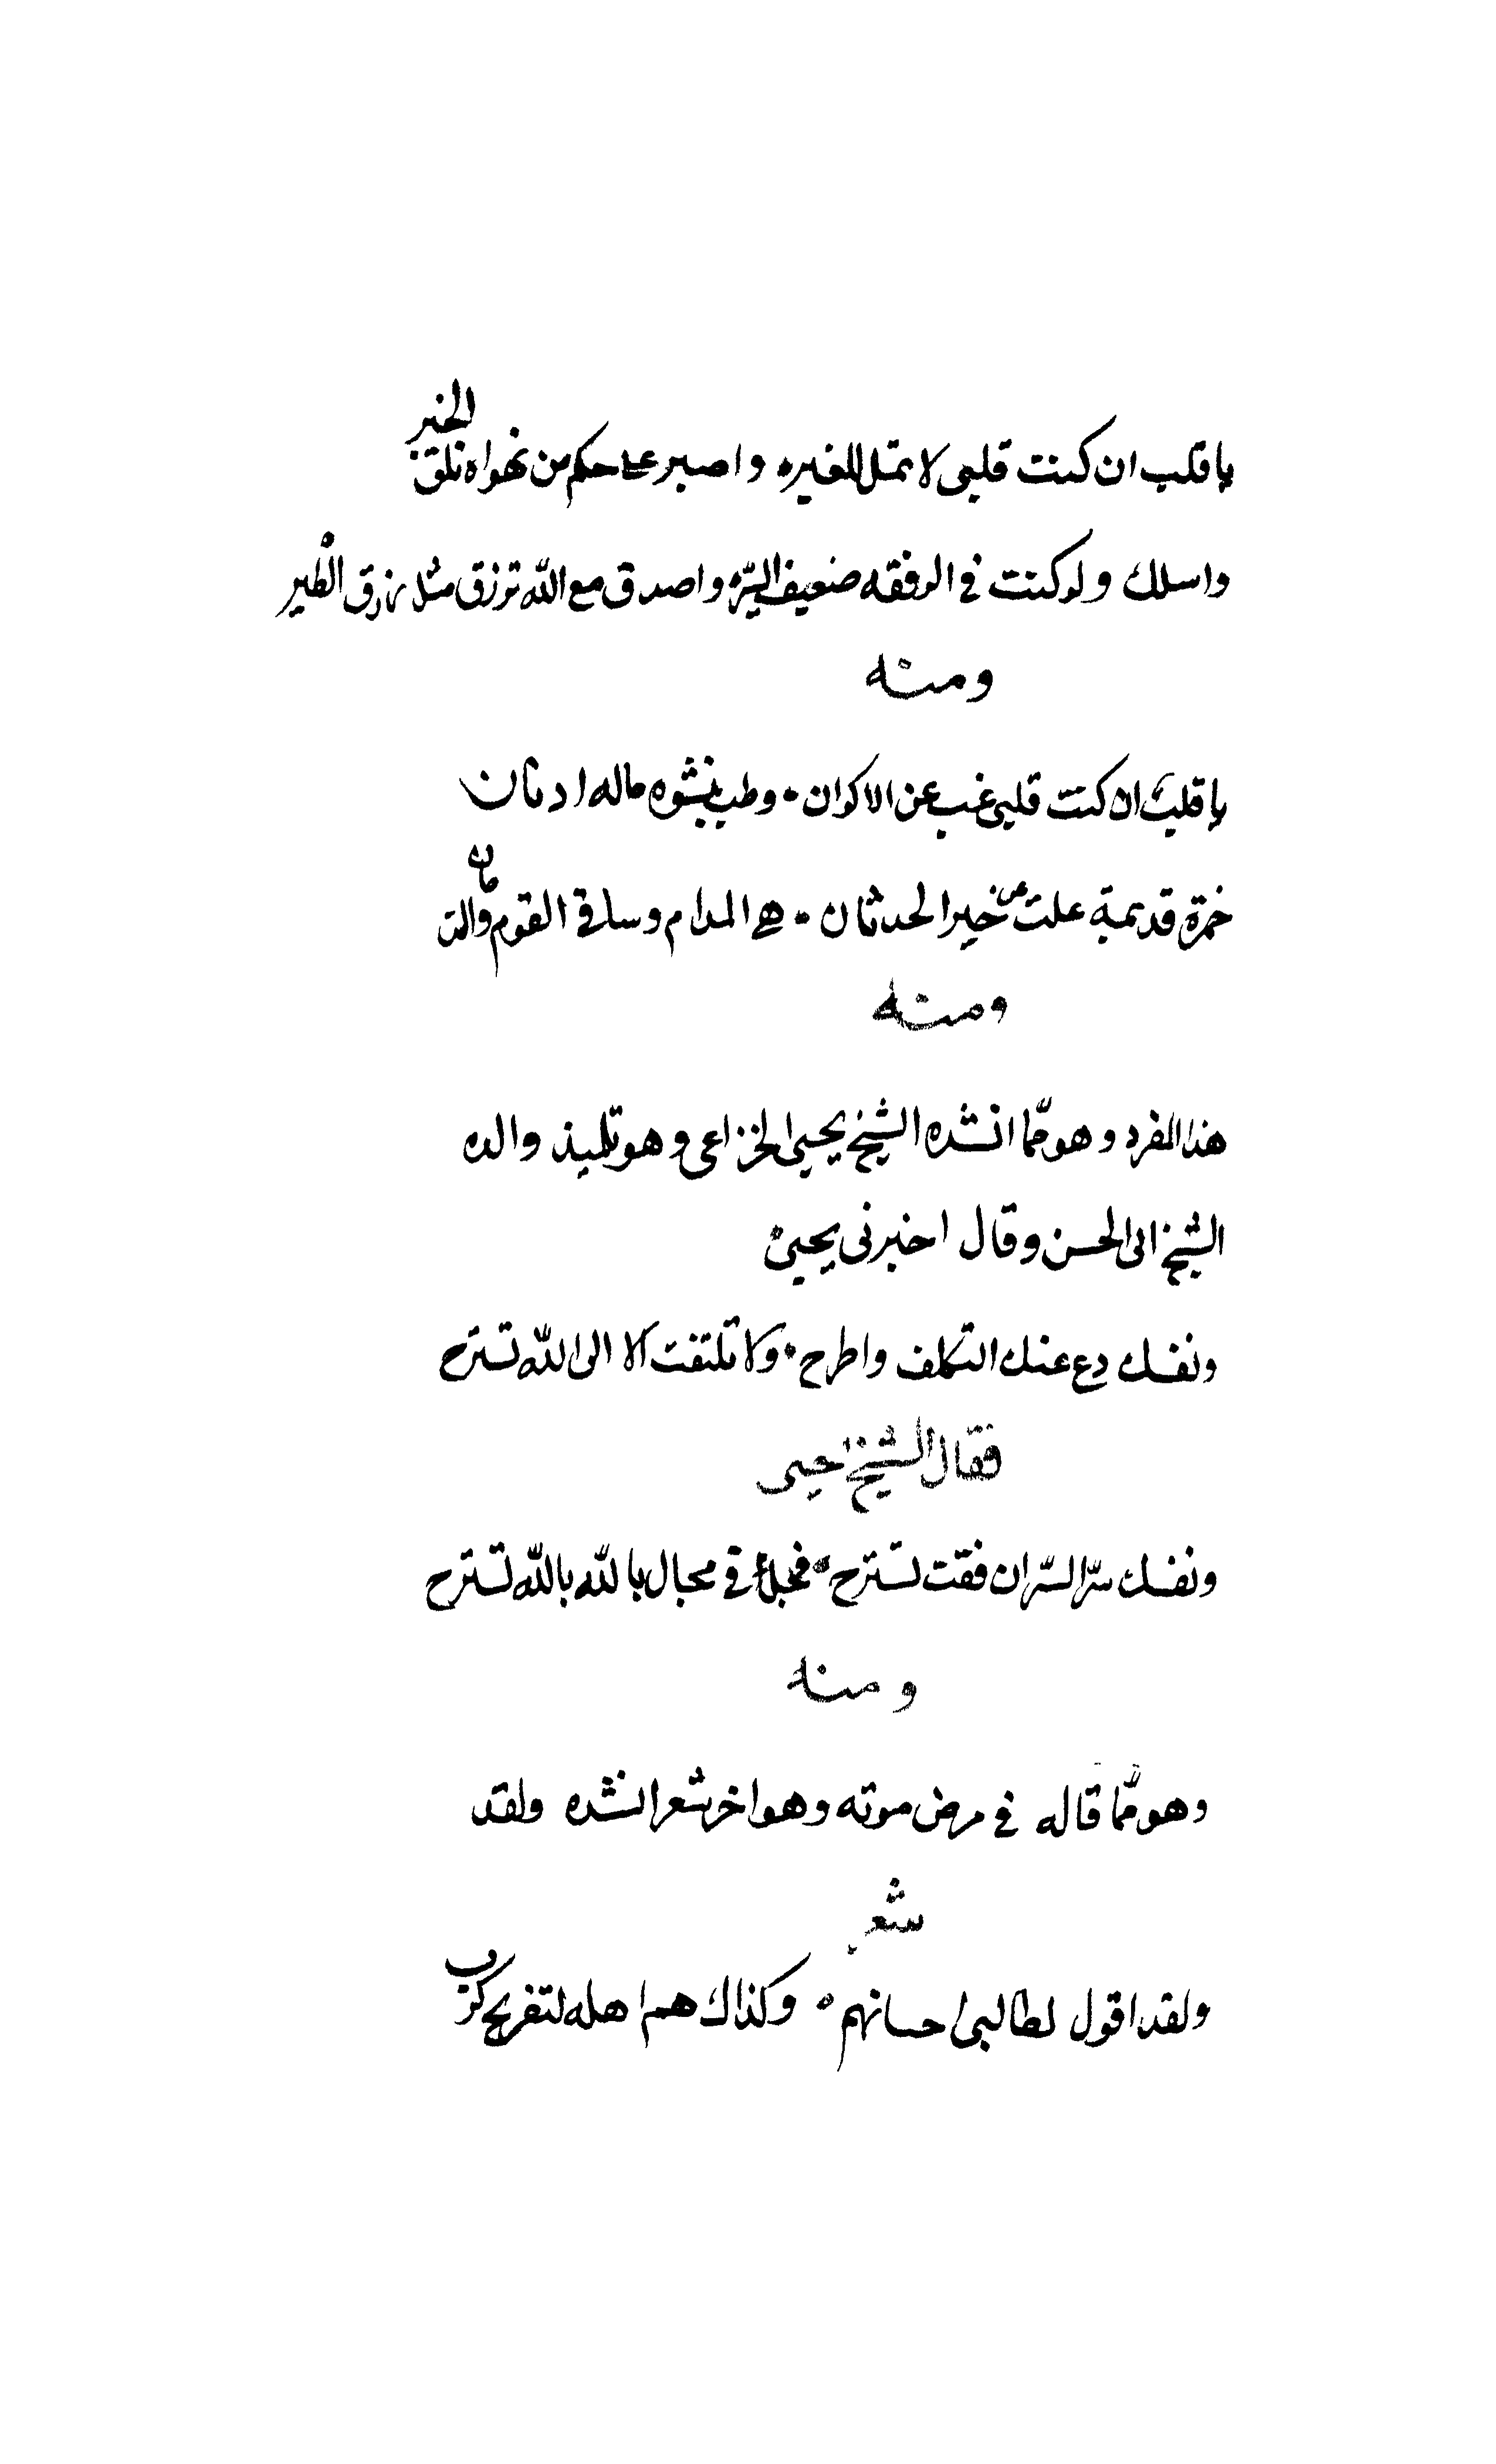 يا قلب ان كنت قلبى لا تمل للغير ه واصبر على حكم من تهواه تلق الخير
واسلك ولو كنت فى الرفقه ضعيف السير ه واصدق مع الله ترزق مثل رزق الطير
ومنه
يا قلب ان كنت قلبى غب عن الاكوان • وطب بنشوه ماله ادنان
خمرة قديمة علت عن خير الحدثان • هي المدام وساقى القوم والندمان
ومنه
هذا المفرد وهو مما انشده الشيخ يحيى الخزاعى وهو تلميذ والده
الشيخ ابى الحسن وقال اخبرنى يحيى ه
ونفسك دع عنك التكلف واطرح • ولا تلتفت الا الى الله تسترح
فقال الشيخ يحيى
ونفسك سرّ السرّ ان فقت تسترح • فى مجال بالله بالله تسترح
ومنه
وهو ممّا قاله فى مرض موته وهو اخر شعر انشده ولقد
شعر
ولقد اقول لطالبى احسانهم • وكذاك هم اهله لتفريج كرب